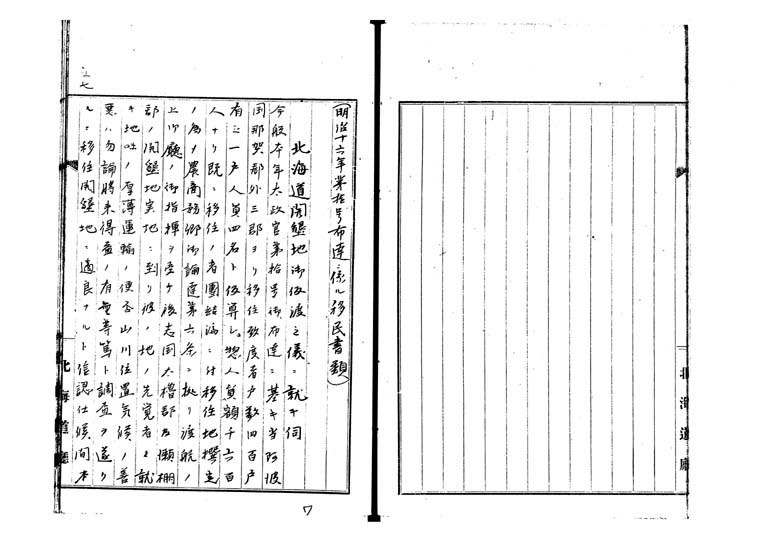 (明治十六年第拾号布達ニ係ル移民書類)
北海道開墾地御仮渡之儀ニ就キ伺
今般本年太政官第拾号御布達ニ基キ当阿波
国那賀郡外三郡ヨリ移住致度者戸数四百戸
有之一戸人員四名ト仮算シ惣人員額千六百
人ナリ既ニ移住ノ者團結済ニ付移住地撰定
ノ為メ農商務卿御諭達第六条ニ拠リ渡航ノ
上御廳ノ御指揮ヲ受ケ後志国太櫓郡及瀬棚
郡ノ開墾地実地ニ到リ彼ノ地ノ先覚者ニ就
キ地味ノ厚薄運輸ノ便否山川位置気候ノ善
悪ハ勿論将来得益ノ有無等篤ト調査ヲ遂ケ
ルニ移住開墾地ニ適良ナルト信認仕候間本
北海道廳
7
北海道廳